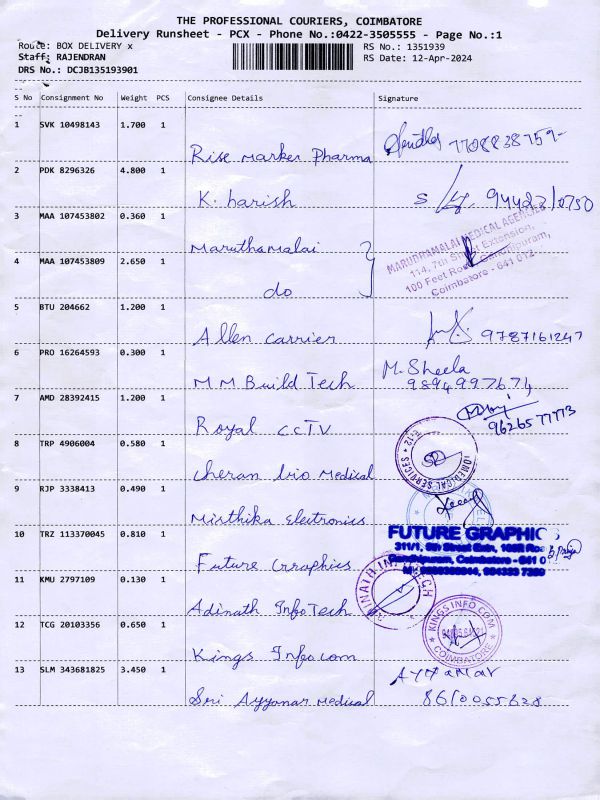 THE PROFESSIONAL COURIERS, COIMBATORE
Delivery Runsheet - PCX - Phone No.:0422-3505555 - Page No.:1
Route: BOX DELIVERY x
RS No.: 1351939
Staff: RAJENDRAN
RS Date: 12-Apr-2024
DRS No.: DCJB135193901
S No Consignment No Weight PCS Consignee Details Signature
1 SVK 10498143 1.700 1
Rise Marker Pharma 7708838759-
2 PDK 8296326 4.800 1
K. harish
3 MAA 107453802 0.360 1
Maruthamalai
MARUDHAMALAI MEDICAL AGENCIES
114, 7th Street Extension,
100 Feet Road, Gandhipuram,
Coimbatore - 641 012.
4 MAA 107453809 2.650 1
do
5 BTU 204662 1.200 1
Allen carrier 9787161247
6 PRO 16264593 0.300 1
M M Build Tech
M. Sheela
7 AMD 28392415 1.200 1
Royal ccTV
9626577773
8 TRP 4906004 0.580 1
cheran bio Medical
9 RJP 3338413 0.490 1
Misthika electronics
10 TRZ 113370045 0.810 1
Future Graphics
FUTURE GRAPHIC
311/1,
Gandhipuram, Coimbatore - 641 0
11 KMU 2797109 0.130 1
Adinath InfoTech
12 TCG 20103356 0.650 1
Kings Infocom
KINGS INFO.COM
COIMBATORE
13 SLM 343681825 3.450 1
Sri Ayyanar Medical